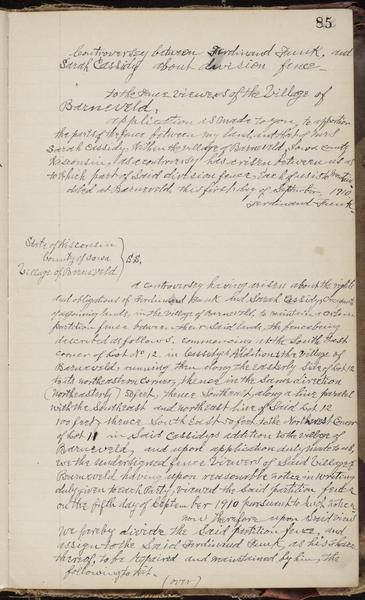 85
Controversy between Ferdinand Funk, and
Sarah Cassidy about division fence—
to the Fence viewers of the Village of
Barneveld,
application is made to you, to apportion
the parts of the fence between my land, and that of Mrs
Sarah Cassidy, Within the village of Barneveld, Iowa County
Wisconsin, as controversy has arisen between us as
to which part of Said division fence, Each of us is to
dated at Barneveld, this first day of September, 1910.
Ferdinand Funk.
State of Wisconsin
County of Iowa
Village of Barneveld
SS.
a controversy having arisen about the rights
and obligations of Ferdinand Funk and Sarah Cassidy,
of adjoining lands, in the village of Barneveld, to maintain a certain
partition fence between their Said lands, the fence being
described as follows, commencing at the South East
corner of Lot No 12, in Cassidy's addition to the village of
Barneveld, running then along the easterly side of Lot 12
to its northeastern corner, thence in the Same direction
(northeasterly) feet, thence Southeast, along a line parallel
with the Southeast and northeast line of Said Lot 12
100 feet, thence South East 50 feet to the Northwest Corner
of Lot 11 in Said Cassidy's addition to the village of
Barneveld, and upon application duly made to us,
we the undersigned fence viewers of Said Village of
Barneveld having upon reasonable notice in writing
duly given to each Party, viewed the Said partition fence
on the fifth day of September 1910 pursuant to such notice—
now Therefore upon Said view
We hereby divide the Said partition fence, and
assign to the Said Ferdinand Funk as his share
thereof, to be repaired and maintained by him, the
following to wit.
(over)